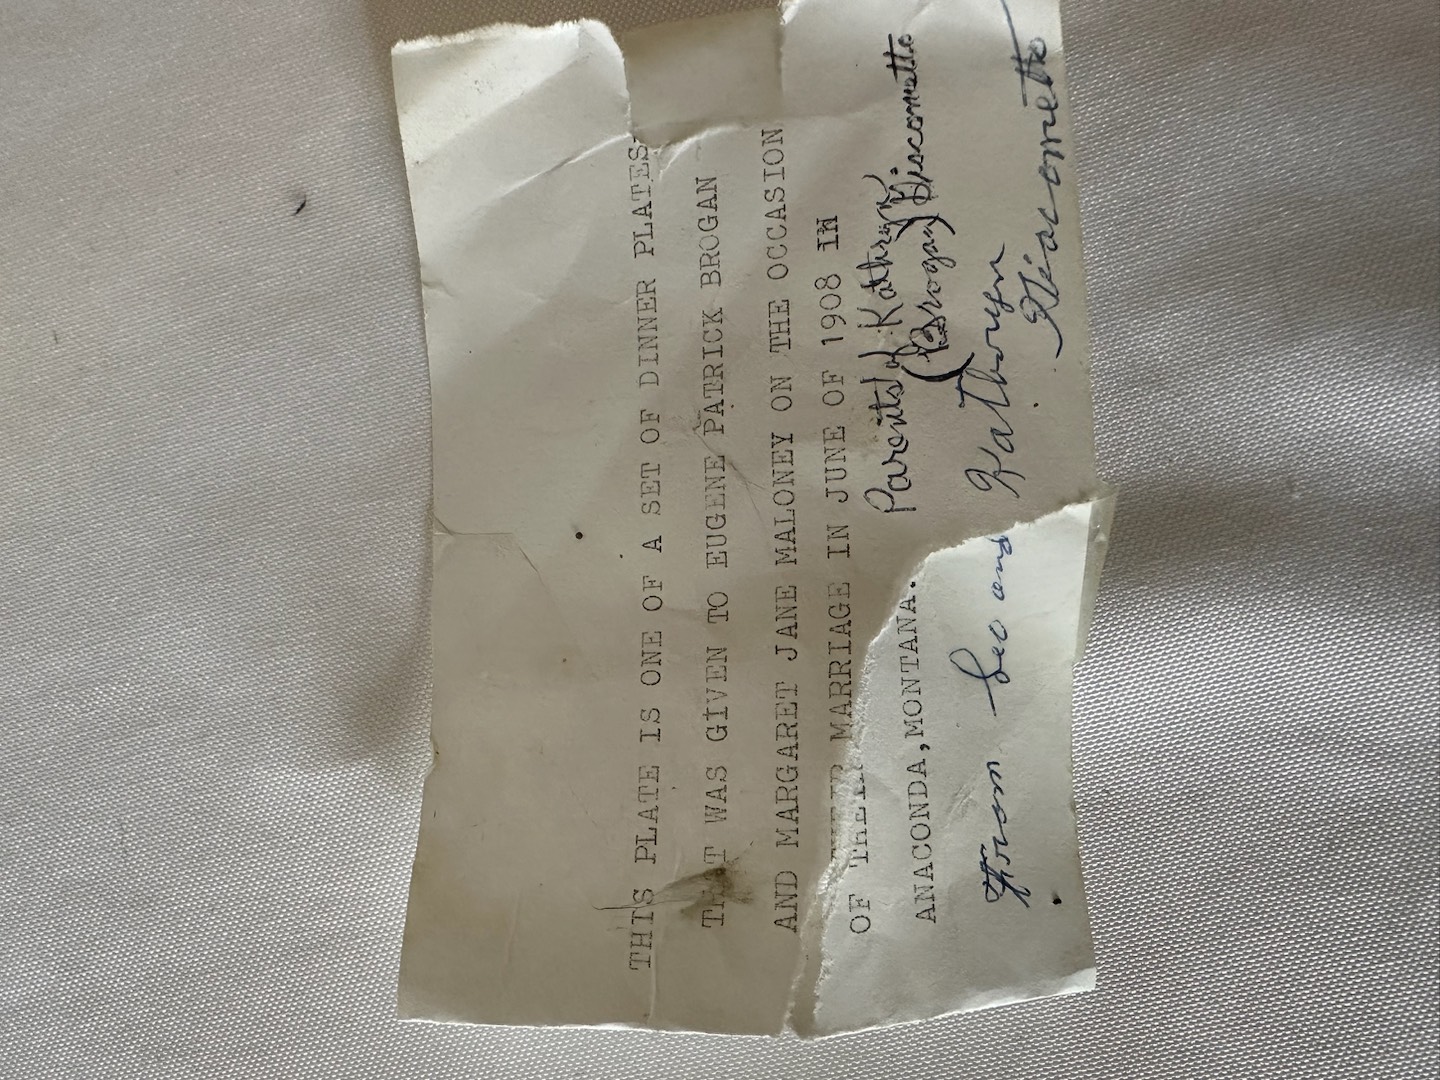 THIS PLATE IS ONE OF A SET OF DINNER PLATES
THAT WAS GIVEN TO EUGENE PATRICK BROGAN
AND MARGARET JANE MALONEY ON THE OCCASION
OF THEIR MARRIAGE IN JUNE OF 1908 IN
ANACONDA,MONTANA.
Parents of Kathryn
(Brogan) Giacometto
From Leo and Kathryn
Giacometto